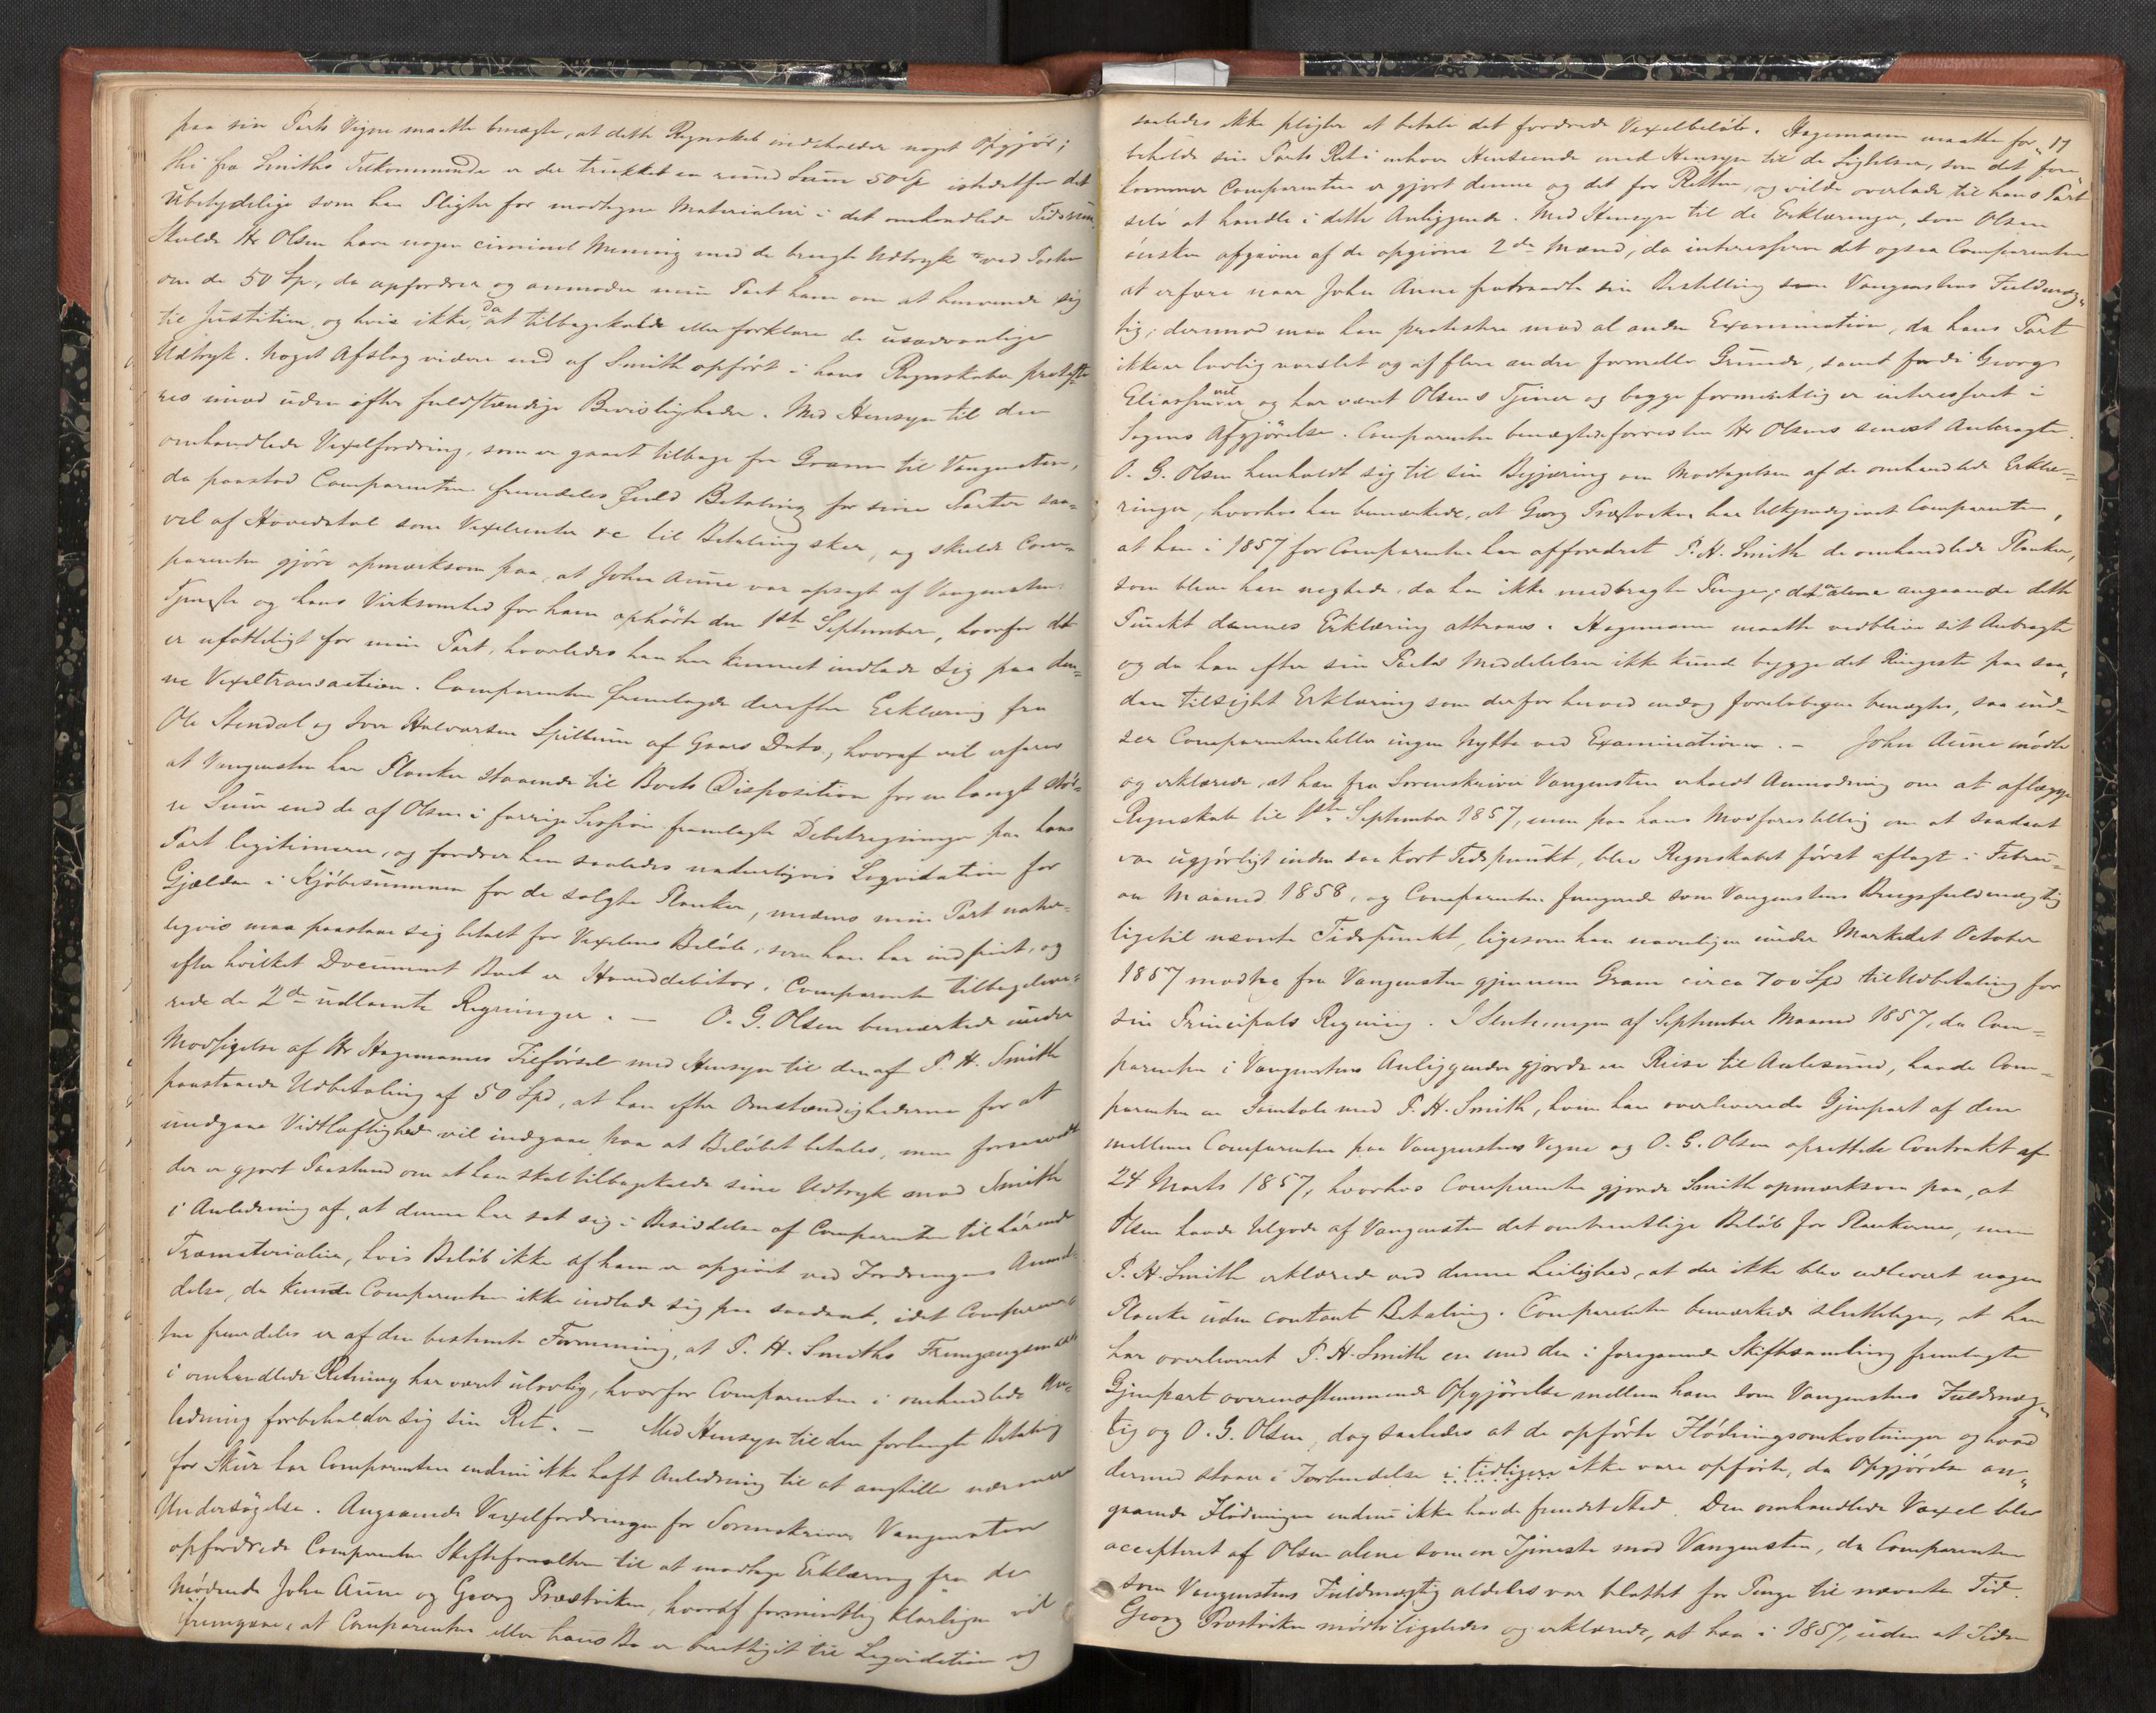 paa sin Parts Vegne maatte benægte, at dette Regnskab indeholder noget Opgjør;
thi fra Smiths Tilkommende er der trukket en rund Sum 50 Sp istedetfor det
Ubetydelige som han Pligter for modtagne Materialier i det omhandlede Tidsrum.
Skulde Hr Olsen have nogen criminel Mening med de brugte Udtryk ved Posten
om de 50 Sp, da opfordrer og anmoder min Part ham om at henvende sig
til Justitien, og hvis ikke, da at tilbagekalde eller forklare de usædvanlige
Udtryk. Noget Afslag videre end af Smith opført i hans Regnskaber proteste-
res imod uden efter fuldstændige Bevisligheder. Med Hensyn til den
omhandlede Vexelfordring, som er gaaet tilbage fra Gram til Vangensten,
da paastod Comparenten fremdeles fuld Betaling for sine Parter saa-
vel af Hovedstol som Vexelrenter &c til Betaling sker, og skulde Com-
parenten gjøre opmærksom paa, at John Aune var opsagt af Vangenstens
Tjeneste og hans Virksomhed for ham ophørte den 1ste September, hvorfor det
er ufatteligt for min Part, hvorledes han har kunnet indlade sig paa den-
ne Vexeltransaction. Comparenten fremlagde derefter Erklæring fra
Ole Stendal og Iver Halvorsen Spillum af Gaars Dato, hvoraf vil erfares
at Vangensten har Planker staaende til Boets Disposition for en langt stør-
re Sum end de af Olsen i forrige Session fremlagte Debetregninger paa hans
Part legitimerer, og fordrer han saaledes naturligvis Liqvidation for
Gjælden i Kjøbesummen for de solgte Planker, medens min Part natur-
ligvis maa paastaae sig betalt for Vexelens Beløb, som han har indfriet, og
efter hvilket Document Boet er Hoveddebitor. Comparenten tilbageleve-
rede de 2de udlaante Regninger. — O. G. Olsen bemærkede under
Modsigelse af Hr Hagemanns Tilførsel med Hensyn til den af P. H. Smith
paastaaede Udbetaling af 50 Spd, at han efter Omstændighederne for at
undgaae Vidtløftighed vil indgaae paa at Beløbet betales, men forsaavidt
der er gjort Paastand om at han skal tilbagekalde sine Udtryk mod Smith
i Anledning af, at denne har sat sig i Besiddelse af Comparenten tilhørende
Træmaterialier, hvis Beløb ikke af ham er opgivet ved Fordringens Anmel-
delse, da kunde Comparenten ikke indlade sig paa saadant, idet Comparen-
ten fremdeles er af den bestemte Formening, at P. H. Smiths Fremgangsmaade
i omhandlede Retning har været ulovlig, hvorfor Comparenten i omhandlede An-
ledning forbeholder sig sin Ret. — Med Hensyn til den forlangte Betaling
for Skur har Comparenten endnu ikke haft Anledning til at anstille nærmere
Undersøgelse. Angaaende Vexelfordringen for Sorenskriver Vangensten
opfordrede Comparenten Skifteforvalteren til at modtage Erklæring fra de
mødende John Aune og Georg Præstviken, hvoraf formentlig klarligen vil
fremgaae, at Comparenten eller hans Bo er berettiget til Liqvidation og
17
saaledes ikke pligter at betale det fordrede Vexelbeløb. Hagemann maatte for-
beholde sin Parts Ret i enhver Henseende med Hensyn til de Sigtelser, som det fore-
kommer Comparenten er gjort denne og det for Retten, og vilde overlade til hans Part
selv at handle i dette Anliggende. Med Hensyn til de Erklæringer, som Olsen
ønsker afgivne af de opgivne 2de Mænd, da interesserer det ogsaa Comparenten
at erfare naar John Aune fratraadte sin Bestilling som Vangenstens Fuldmæg-
tig; derimod maa han protestere mod al anden Examination, da hans Part
ikke er lovlig varslet og af flere andre formelle Grunde, samt fordi Georg
Eliassen vel er og har været Olsens Tjener og begge formentlig er interesseret i
Sagens Afgjørelse. Comparenten benægtede forresten Hr Olsens senest Anbragte.
O. G. Olsen henholdt sig til sin Begjæring om Modtagelsen af de omhandlede Erklæ-
ringer, hvorhos han bemærkede, at Georg Præstviken har tilkjendegivet Comparenten,
at han i 1857 for Comparenten har affordret P. H. Smith de omhandlede Planker,
som bleve ham negtede, da han ikke medbragte Penge; det er alene angaaende dette
Punkt dennes Erklæring attraaes. Hagemann maatte vedblive sit Anbragte
og da han efter sin Parts Meddelelser ikke kunde bygge det Ringeste paa saa-
dan tilsigtet Erklæring som derfor herved endog foreløbigen benægtes, saa ind-
seer Comparenten heller ingen Nytte ved Examinationen. — John Aune mødte
og erklærede, at han fra Sorenskriver Vangensten erholdt Anmodning om at aflægge
Regnskab til 1ste September 1857, men paa hans Modforestilling om at saadant
var ugjørligt inden saa kort Tidspunkt, blev Regnskabet først aflagt i Februar
Maaned 1858, og Comparenten fungerede som Vangenstens Brugsfuldmægtig
ligetil nævnte Tidspunkt, ligesom han navnligen under Markedet October
1857 modtog fra Vangensten gjennem Gram circa 700 Spd til Udbetaling for
sin Principals Regning. I Slutningen af September Maaned 1857, da Com-
parenten i Vangenstens Anliggender gjorde en Reise til Aalesund, havde Com-
parenten en Samtale med P. H. Smith, hvem han overleverede Gjenpart af den
mellem Comparenten paa Vangenstens Vegne og O. G. Olsen oprettede Contrakt af
24 Marts 1857, hvorhos Comparenten gjorde Smith opmærksom paa, at
Olsen havde tilgode af Vangensten det omtrentlige Beløb for Plankerne, men
P. H. Smith erklærede ved denne Leilighed, at der ikke blev udleveret nogen
Planke uden contant Betaling. Comparenten bemærkede sluttelligen, at han
har overleveret P. H. Smith en med den i foregaaende Skiftesamling fremlagte
Gjenpart overensstemmende Opgjørelse mellem ham som Vangenstens Fuldmæg-
tig og O. G. Olsen, dog saaledes at de opførte Flødningsomkostninger og hvad
dermed staaer i Forbindelse i tidligere ikke vare opførte, da Opgjørelse an-
gaaende Flødningen endnu ikke havde fundet Sted. Den omhandlede Vexel blev
accepteret af Olsen alene som en Tjeneste mod Vangensten, da Comparenten
som Vangenstens Fuldmægtig aldeles var blottet for Penge til nævnte Tid.
Georg Præstviken mødte ligeledes og erklærede, at han i 1857, uden at Tiden